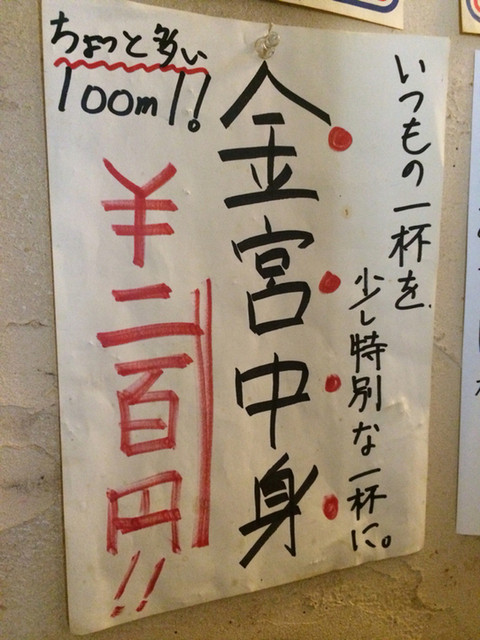 いつもの一杯を
少し特別な一杯に。
金宮中身
ちょっと多い
100ml!
¥二百円!!